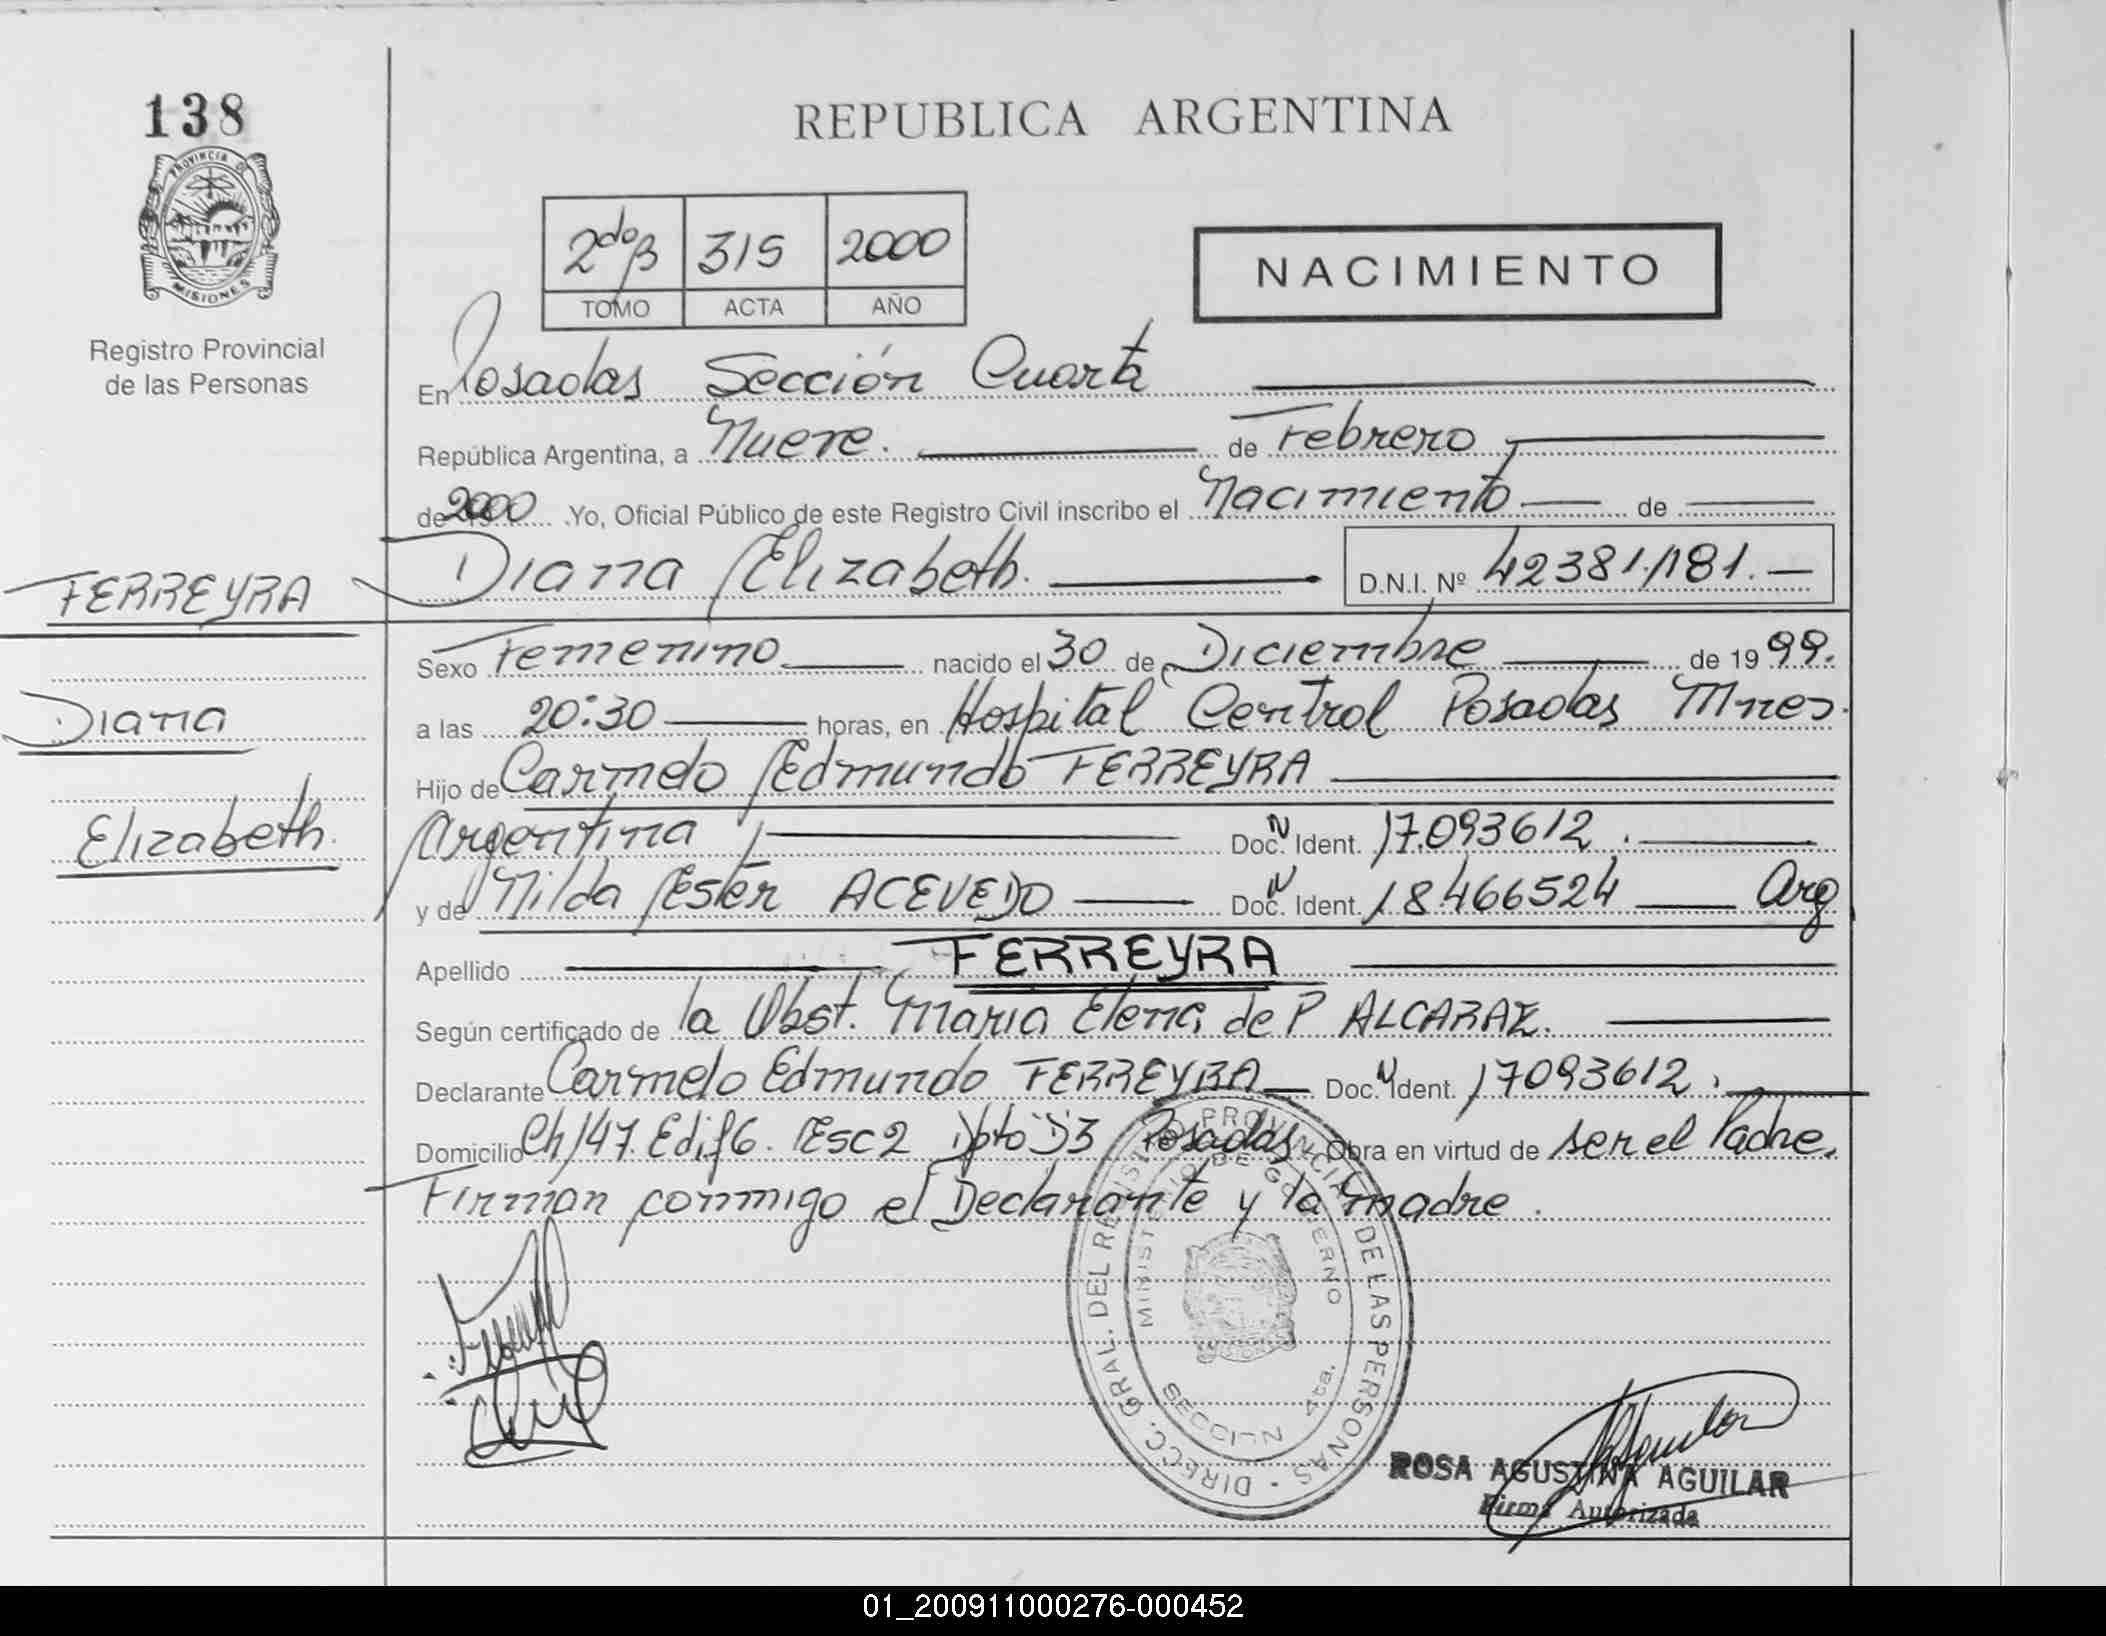 138
PROVINCIA DE
MISIONES
Registro Provincial
de las Personas
REPUBLICA ARGENTINA
2do B 315 2000
TOMO ACTA AÑO
NACIMIENTO
En Posadas Sección Cuarta
República Argentina, a Nueve. de Febrero
de 2000 Yo, Oficial Público de este Registro Civil inscribo el Nacimiento de
Diana Elizabeth. D.N.I. Nº 42381.181.
FERREYRA
Diana
Elizabeth.
Sexo Femenino nacido el 30 de Diciembre de 1999.
a las 20:30 horas, en Hospital Central Posadas Mnes.
Hijo de Carmelo Edmundo FERREYRA
Argentina, Doc. N Ident. 17.093612.
y de Nilda Ester ACEVEDO Doc. N Ident. 18466524 Arg
Apellido FERREYRA
Según certificado de la Obst. Maria Elena de P ALCARAZ.
Declarante Carmelo Edmundo FERREYRA Doc. N Ident. 17093612.
Domicilio Ch 147. Edif 6. Esc 2 Dpto D3 Posadas Obra en virtud de ser el Padre.
Firman conmigo el Declarante y la Madre.
DIRECC. GRAL. DEL REGISTRO PROVINCIAL DE LAS PERSONAS
MINISTERIO DE GOBIERNO
SECCION 4ta.
ROSA AGUSTINA AGUILAR
Firma Autorizada
01_200911000276-000452